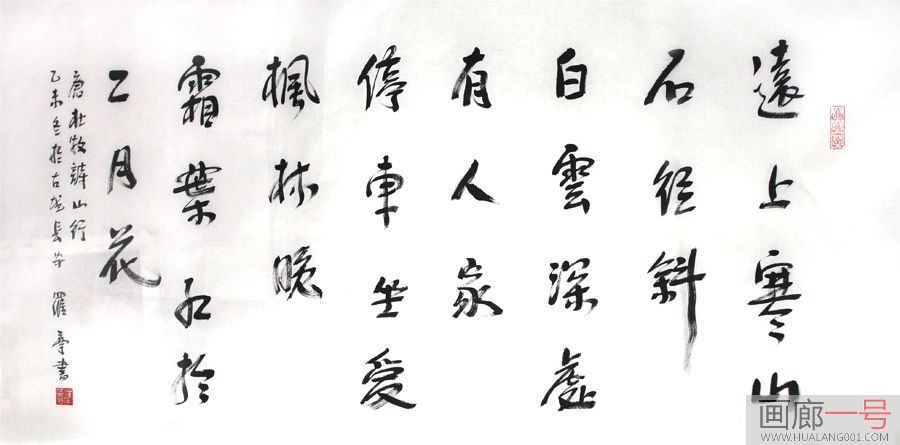 遠上寒山
石徑斜
白雲深處
有人家
停車坐愛
楓林晚
霜葉紅於
二月花
唐杜牧詩山行
乙未冬於古城長安 羅 書
画廊一号
WWW.HUALANG001.COM